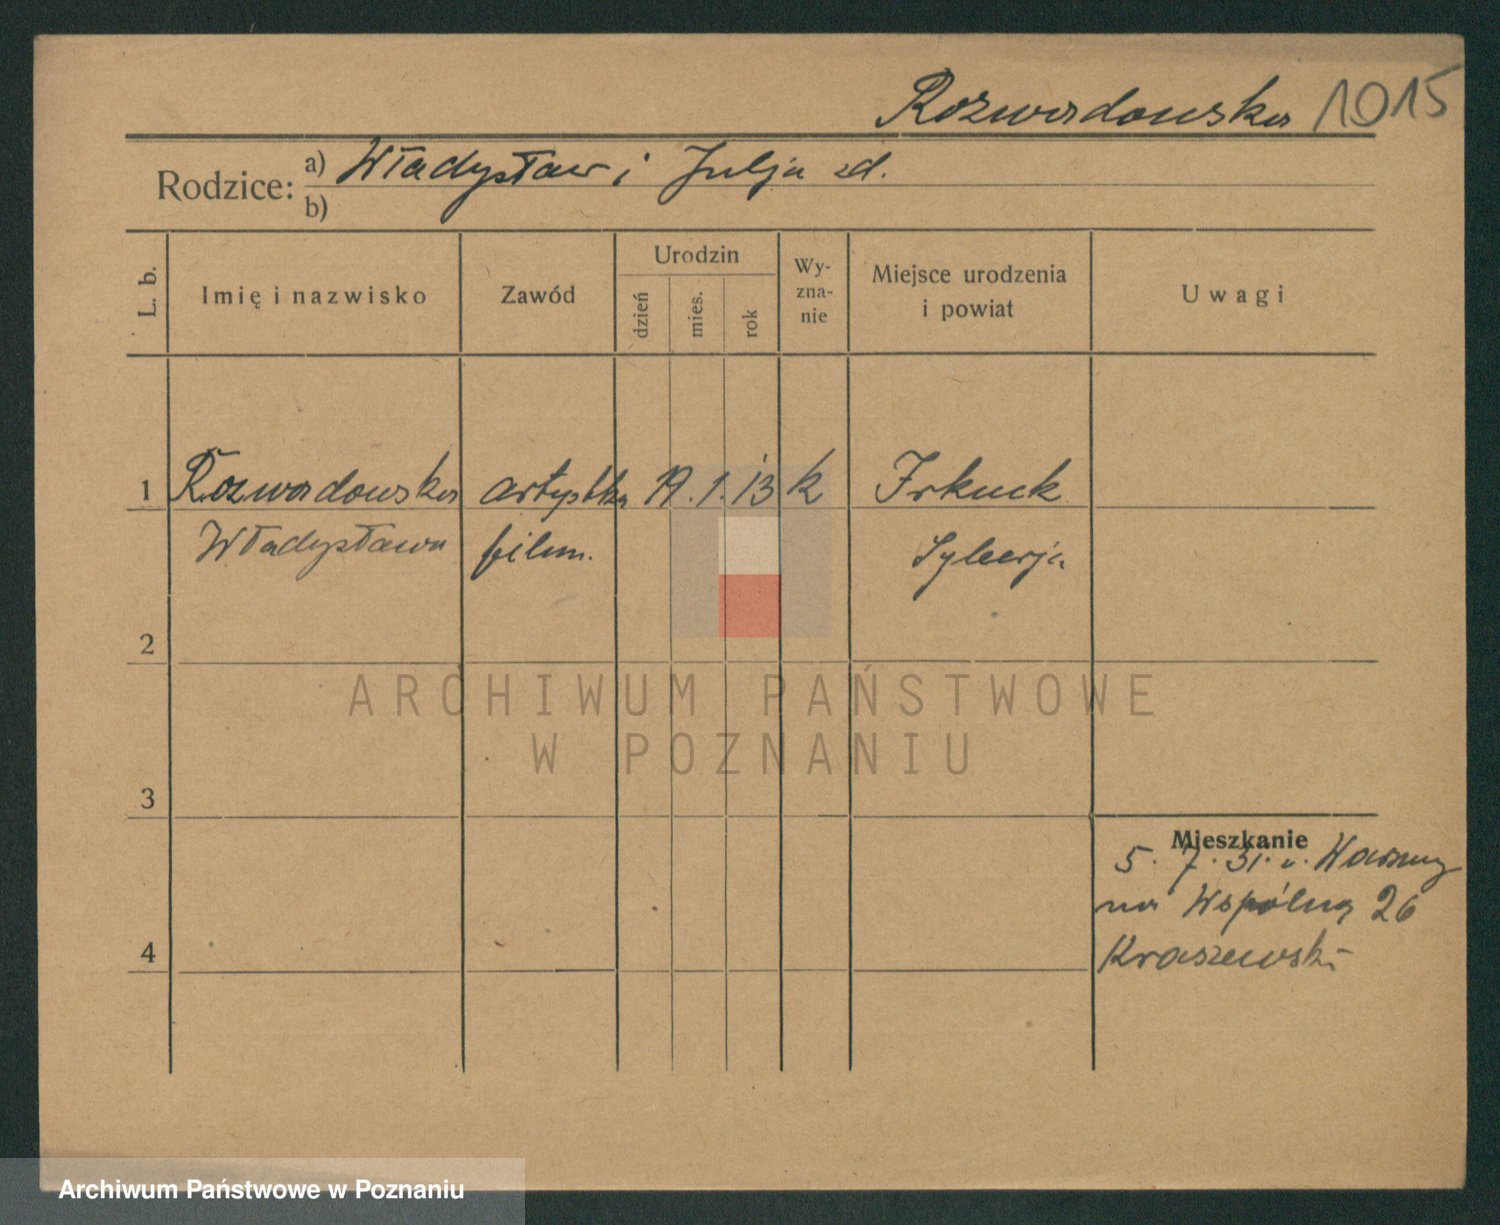 Rozwadowska 1015
Rodzice: a) Władysław i Julja zd.
b)
L. b.
Imię i nazwisko
Zawód
Urodzin
dzień
mies.
rok
Wy-
zna-
nie
Miejsce urodzenia
i powiat
Uwagi
1 Rozwadowska artystka 19. 1. 13 k Irkuck
Władysława film. Syberja
2
ARCHIWUM PAŃSTWOWE
W POZNANIU
3
Mieszkanie
5. 7. 31. z Warszawy
na Wspólną 26
Kraszewski
4
Archiwum Państwowe w Poznaniu